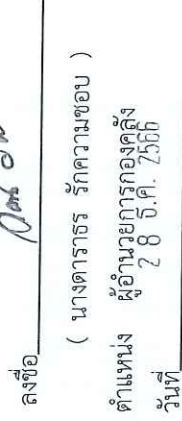 ลงชื่อ
( นางดาราธร รักความชอบ )
ตำแหน่ง ผู้อำนวยการกองคลัง
วันที่ 2 8 ธ.ค. 2566